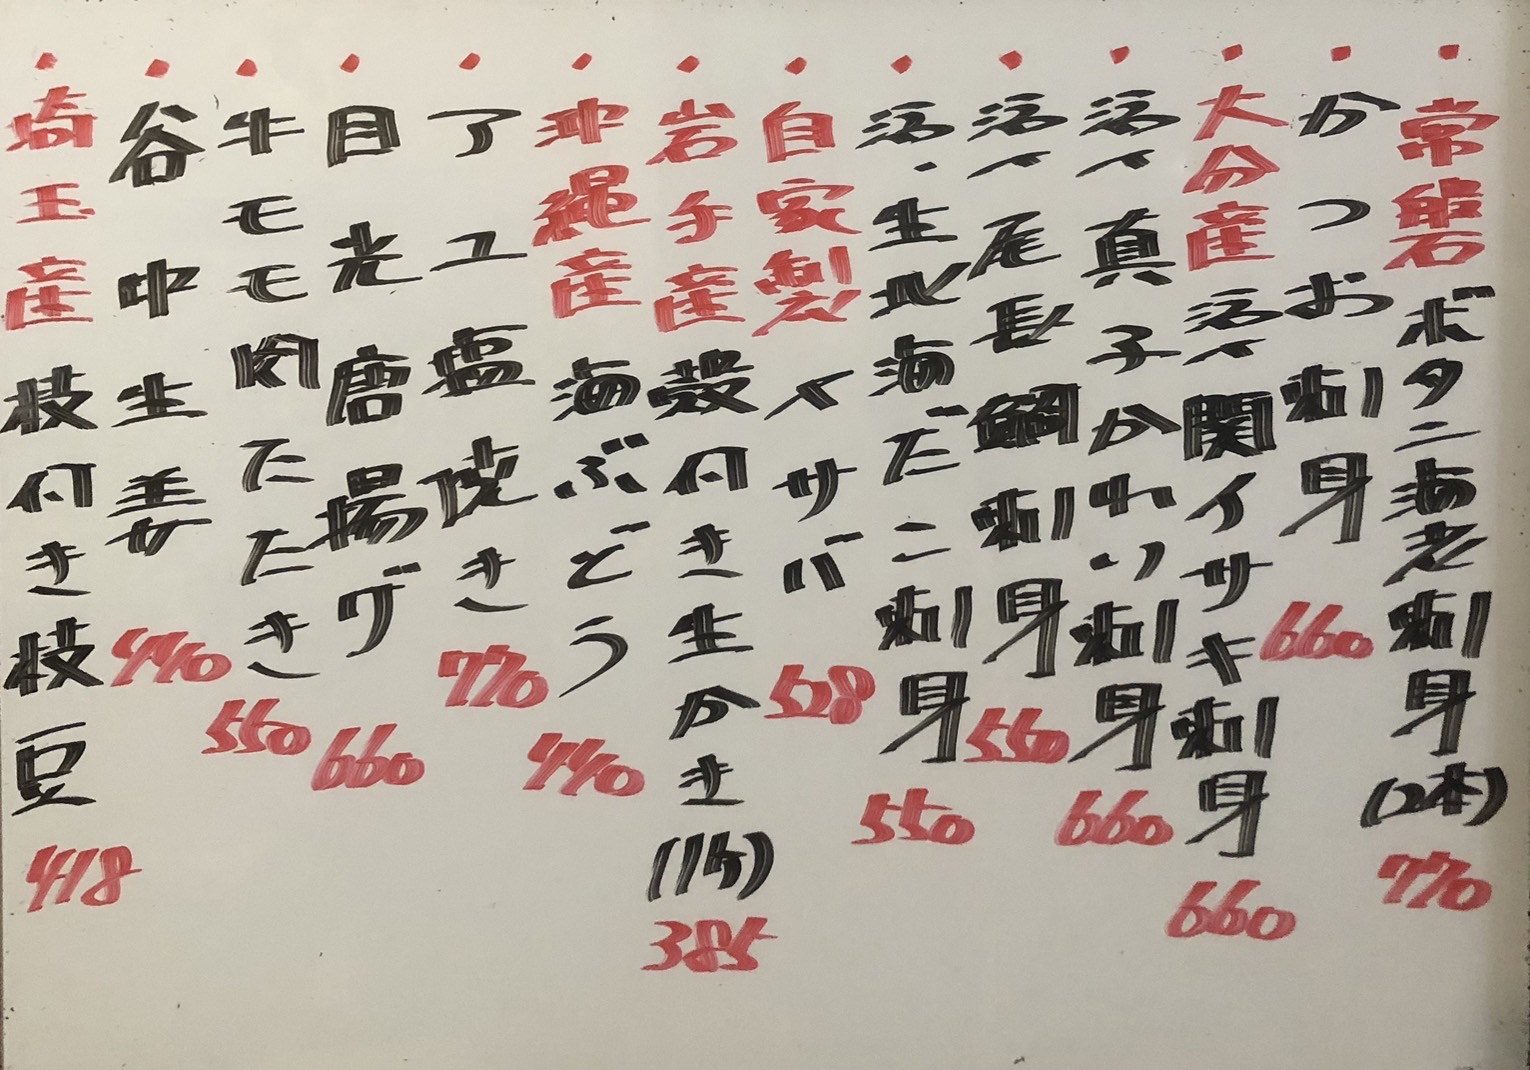 ・常磐ボタニ海老刺身(2本)770
・かつお刺身660
・大分産活〆関イサキ刺身660
・活〆真子かれい刺身660
・活〆尾長鯛刺身550
・活・生北海だこ刺身550
・自家製〆サバ528
・岩手産殻付き生かき(1ケ)385
・沖縄産海ぶどう440
・アユ塩焼き770
・目光唐揚げ660
・牛モモ肉たたき550
・谷中生姜440
・埼玉産枝付き枝豆418